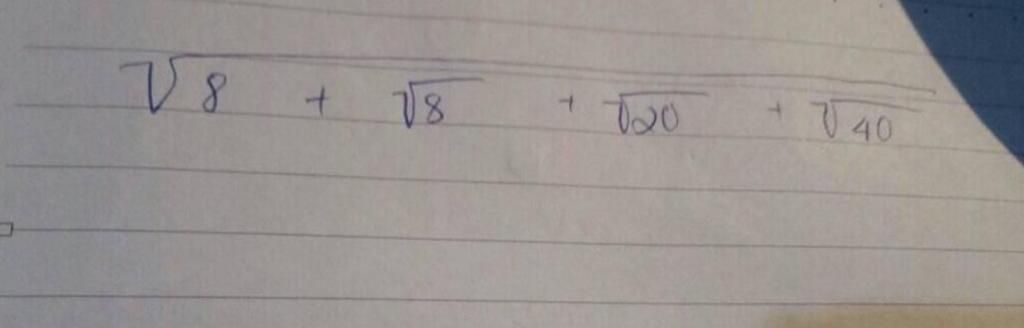 √(8 + √8 + √20 + √40)